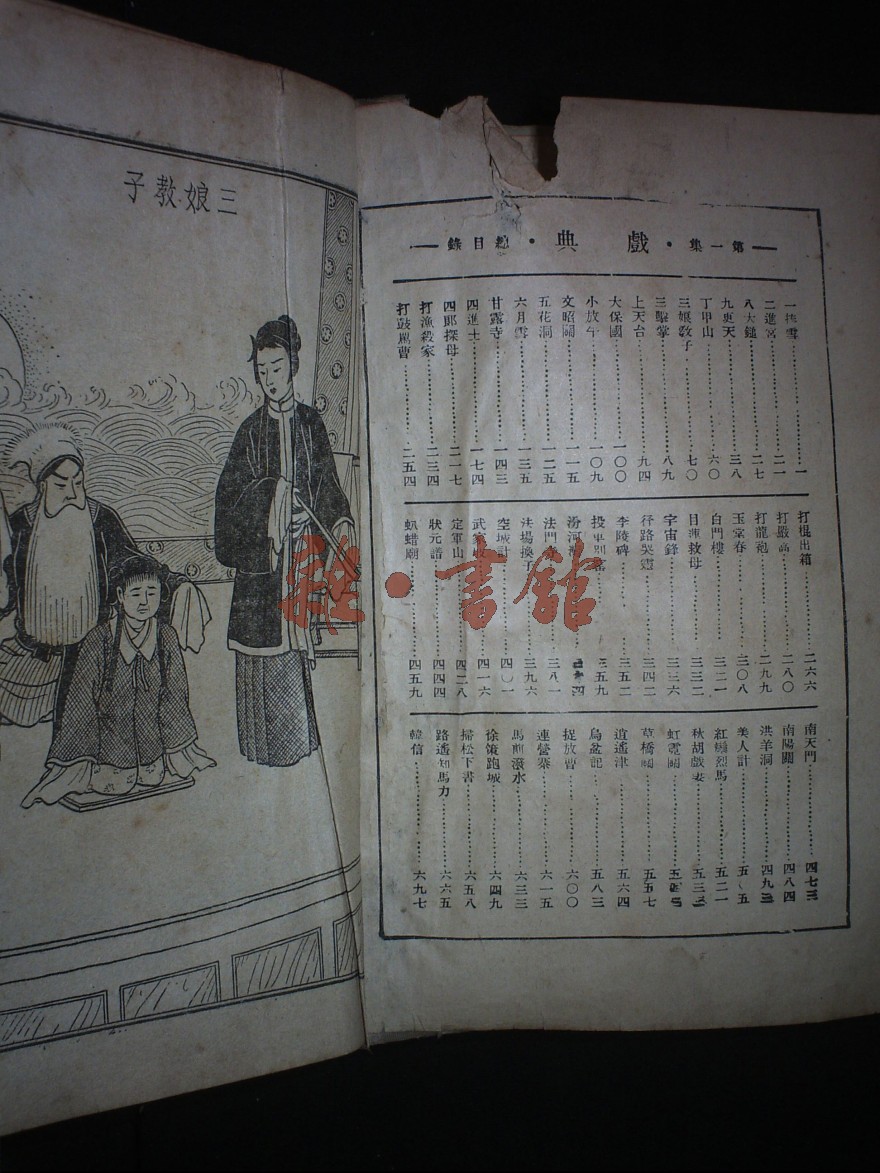 三娘教子
第一集・戲典・總目錄
一捧雪 一
二進宮 二一
八大鎚 二七
九更天 三八
丁甲山 六〇
三娘敎子 八〇
三擊掌 八九
上天台 九四
大保國 一〇〇
小放牛 一〇九
文昭關 一一五
五花洞 一二五
六月雪 一三五
甘露寺 一四三
四進士 一七四
四郎探母 二一七
打漁殺家 二三四
打鼓罵曹 二五四
打棍出箱 二六六
打嚴嵩 二八〇
打龍袍 二九九
玉堂春 三〇八
白門樓 三二一
目蓮救母 三三二
宇宙鋒 三三六
行路哭靈 三四二
李陵碑 三五二
投軍別窰 三五九
汾河灣
法門寺 三八一
法場換子 三九六
空城計 四〇一
武家坡 四一六
定軍山 四二八
狀元譜 四四四
虮蜡廟 四五九
南天門 四七三
南陽關 四八四
洪羊洞 四九三
美人計 五〇五
紅鬃烈馬 五二一
秋胡戲妻 五三三
虹霓關
草橋關 五五七
逍遙津 五六四
烏盆記 五八三
捉放曹 六〇〇
連營寨 六一五
馬前潑水 六三三
徐策跑城 六四九
掃松下書 六五八
路遙知馬力 六六五
韓信 六九七
雜・書館